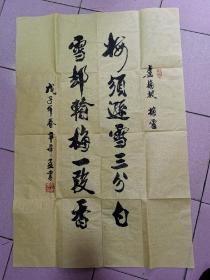 卢梅坡 梅雪
梅须逊雪三分白
雪却输梅一段香
戊子年春